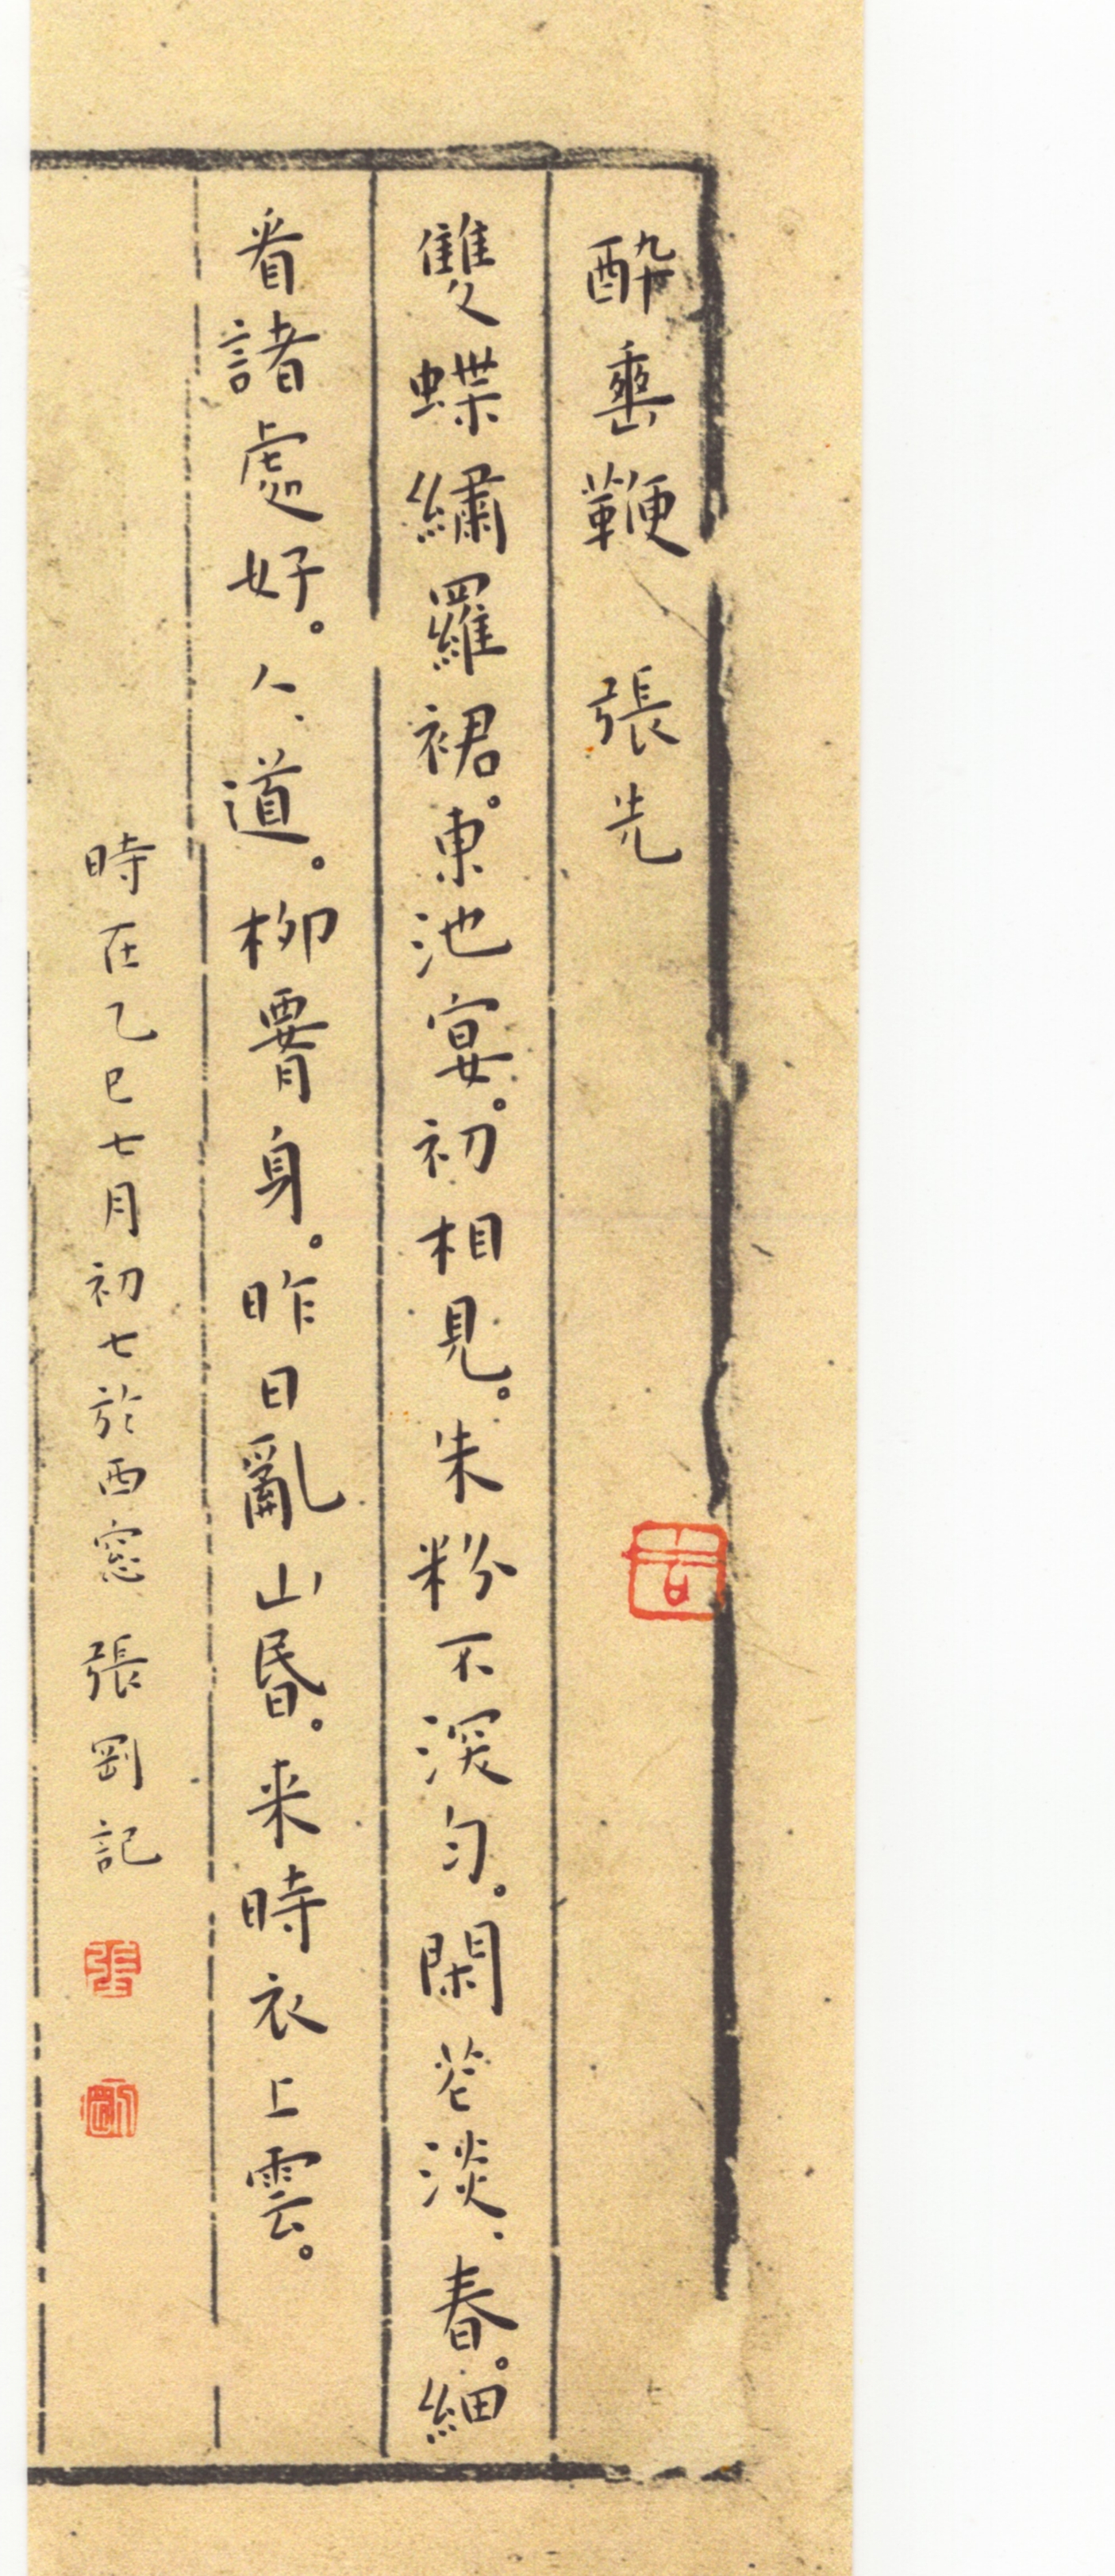 醉垂鞭 張先
雙蝶繡羅裙。東池宴。初相見。朱粉不深勻。閑花淡、春。細
看諸處好。人、道。柳署身。昨日亂山昏。来時衣上雲。
時在乙巳七月初七於西窓 張剛記